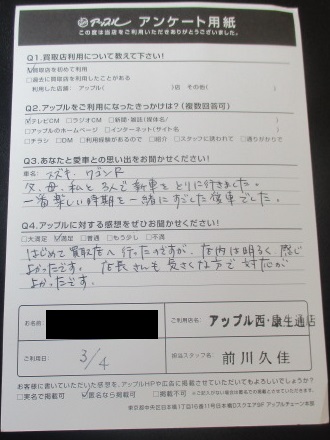 アップル アンケート用紙
この度は当店をご利用いただきありがとうございました。
Q1.買取店利用について教えて下さい!
☑買取店を初めて利用
□過去に買取店を利用したことがある
利用した店舗: アップル( )店 その他( )
Q2.アップルをご利用になったきっかけは?(複数回答可)
☑テレビCM □ラジオCM □新聞・雑誌(媒体名/ )
□アップルのホームページ □インターネット(サイト名 )
□チラシ □DM □利用経験がある □紹介 □スタッフに誘われて □通りがかりで
Q3.あなたと愛車との思い出をお聞かせください!
車名: スズキ ワゴンR
父、母、私と3人で新車をとりに行きました。
一番楽しい時期を一緒にすごした愛車でした。
Q4.アップルに対する感想をぜひお聞かせください!
□大満足 ☑満足 □普通 □もう少し □不満
はじめて買取店へ行ったのですが、店内は明るく、感じ
よかったです。 店長さんも気さくな方で対応が
よかったです。
お名前
ご利用店名: アップル西・康生通店
ご利用日 3/4
担当スタッフ名 前川久佳
お客様に書いていただいた感想を、アップルHPや広告に掲載させていただいてもよろしいでしょうか?
□実名で掲載可 ☑匿名なら掲載可 □掲載不可
東京都中央区日本橋1丁目16番11号日本橋Dスクエア5F アップルチェーン本部